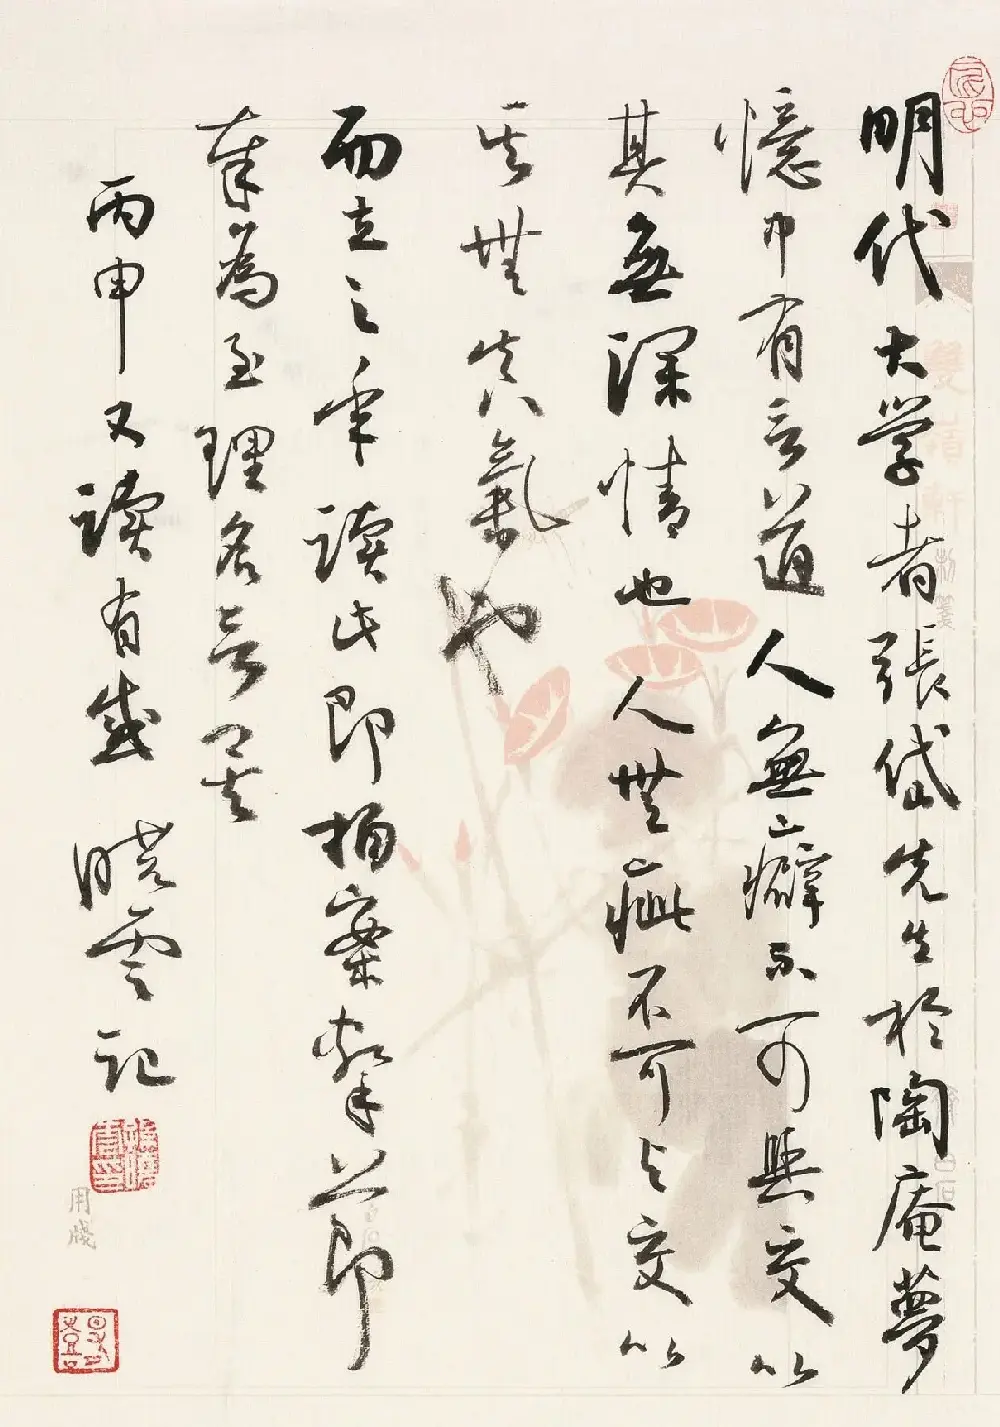 明代大学者張岱先生於陶庵夢
憶中有言道人無癖不可與交以
其無深情也人無疵不可与交以
其無真氣也
而立之年讀此即拍案擊節
奉為至理名言矣
丙申又讀有感 晓雲记
雙
軒
用牋